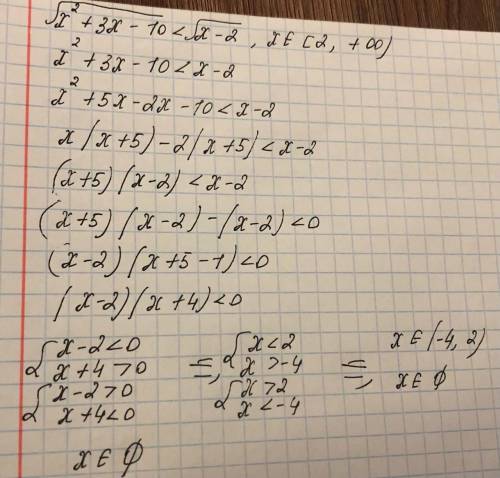 √(x² + 3x - 10) < √(x - 2) , x ∈ [2, +∞)
x² + 3x - 10 < x - 2
x² + 5x - 2x - 10 < x - 2
x(x+5) - 2(x+5) < x - 2
(x+5)(x-2) < x - 2
(x+5)(x-2) - (x-2) < 0
(x-2)(x+5-1) < 0
(x-2)(x+4) < 0
{ x - 2 < 0 =, { x < 2 =, x ∈ (-4, 2)
x + 4 > 0 x > -4
{ x - 2 > 0 { x > 2 x ∈ ∅
x + 4 < 0 x < -4
x ∈ ∅